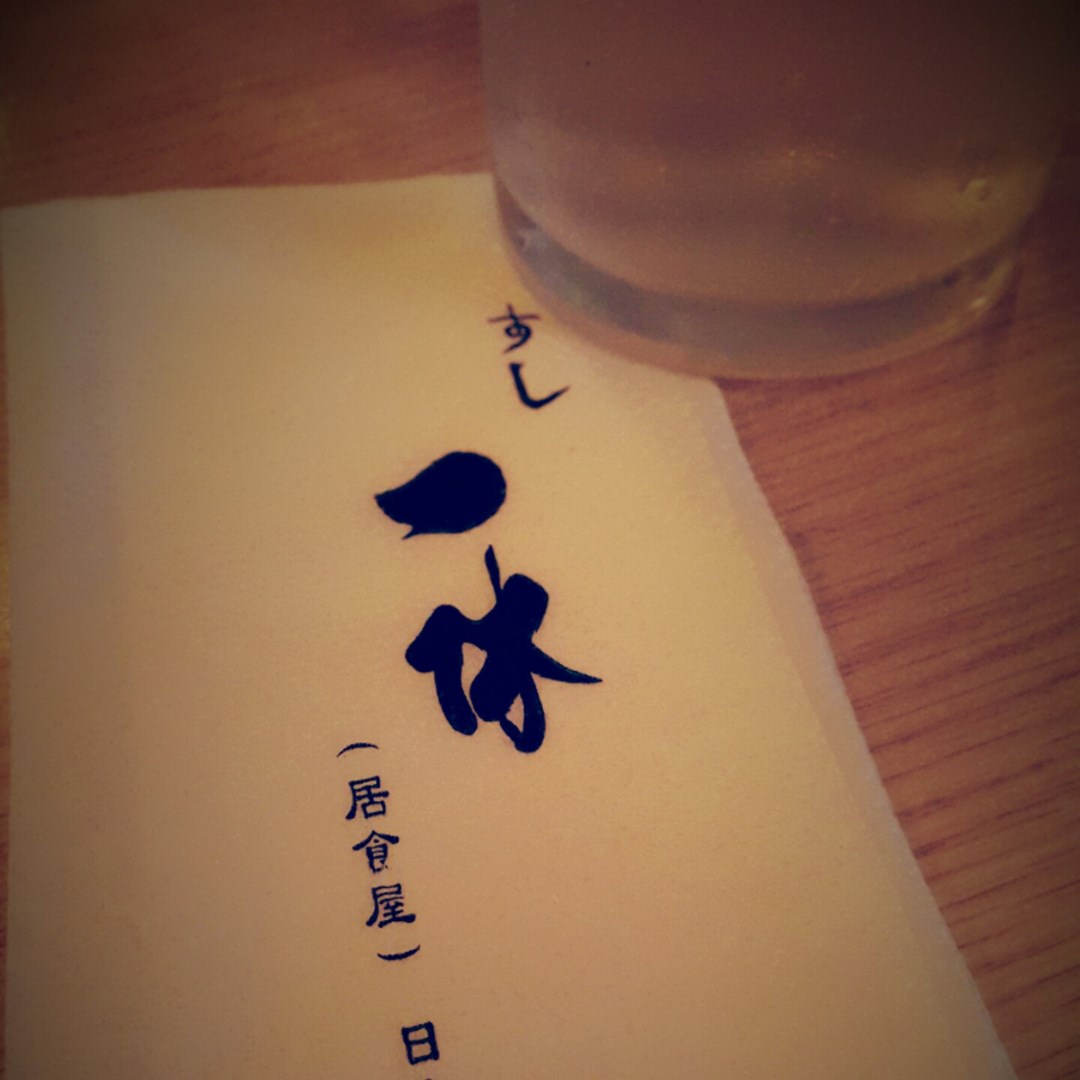 すし
一休
(居食屋) 日